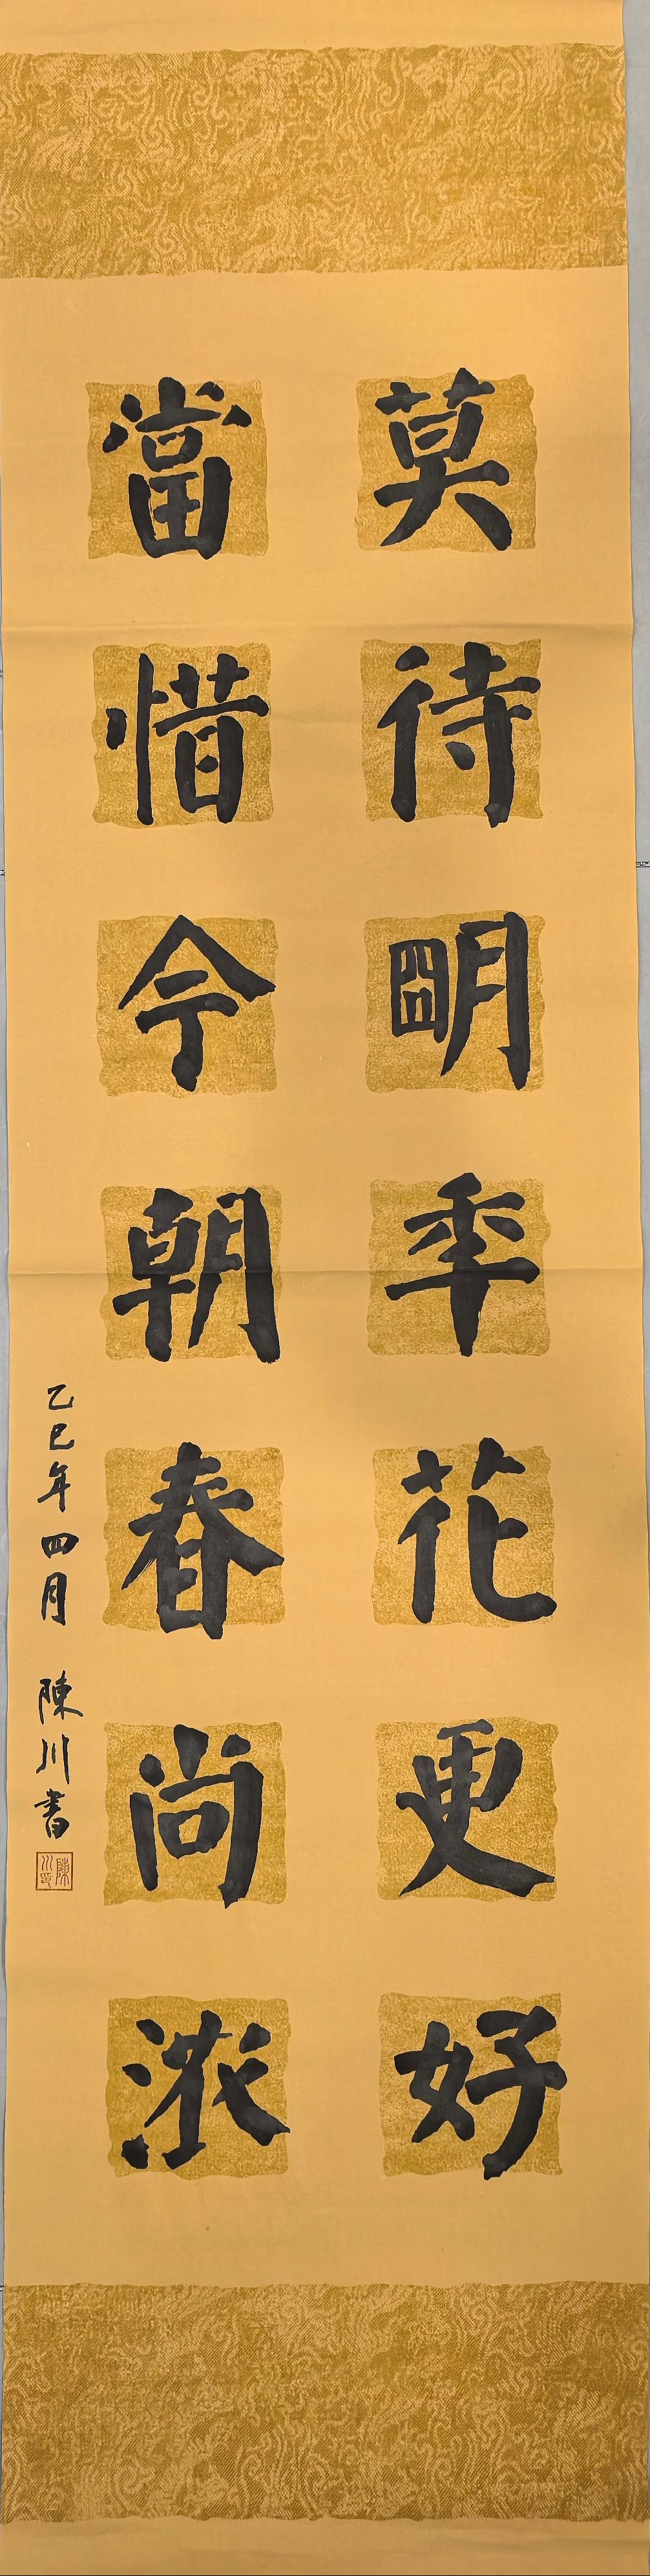 莫待明年花更好
當惜今朝春尚浓
乙巳年四月 陳川書
陳川印